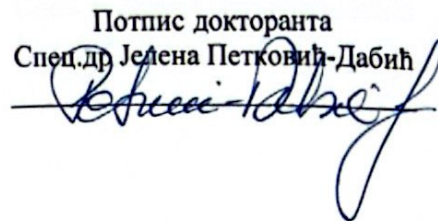 Потпис докторанта
Спец.др Јелена Петковић-Дабић